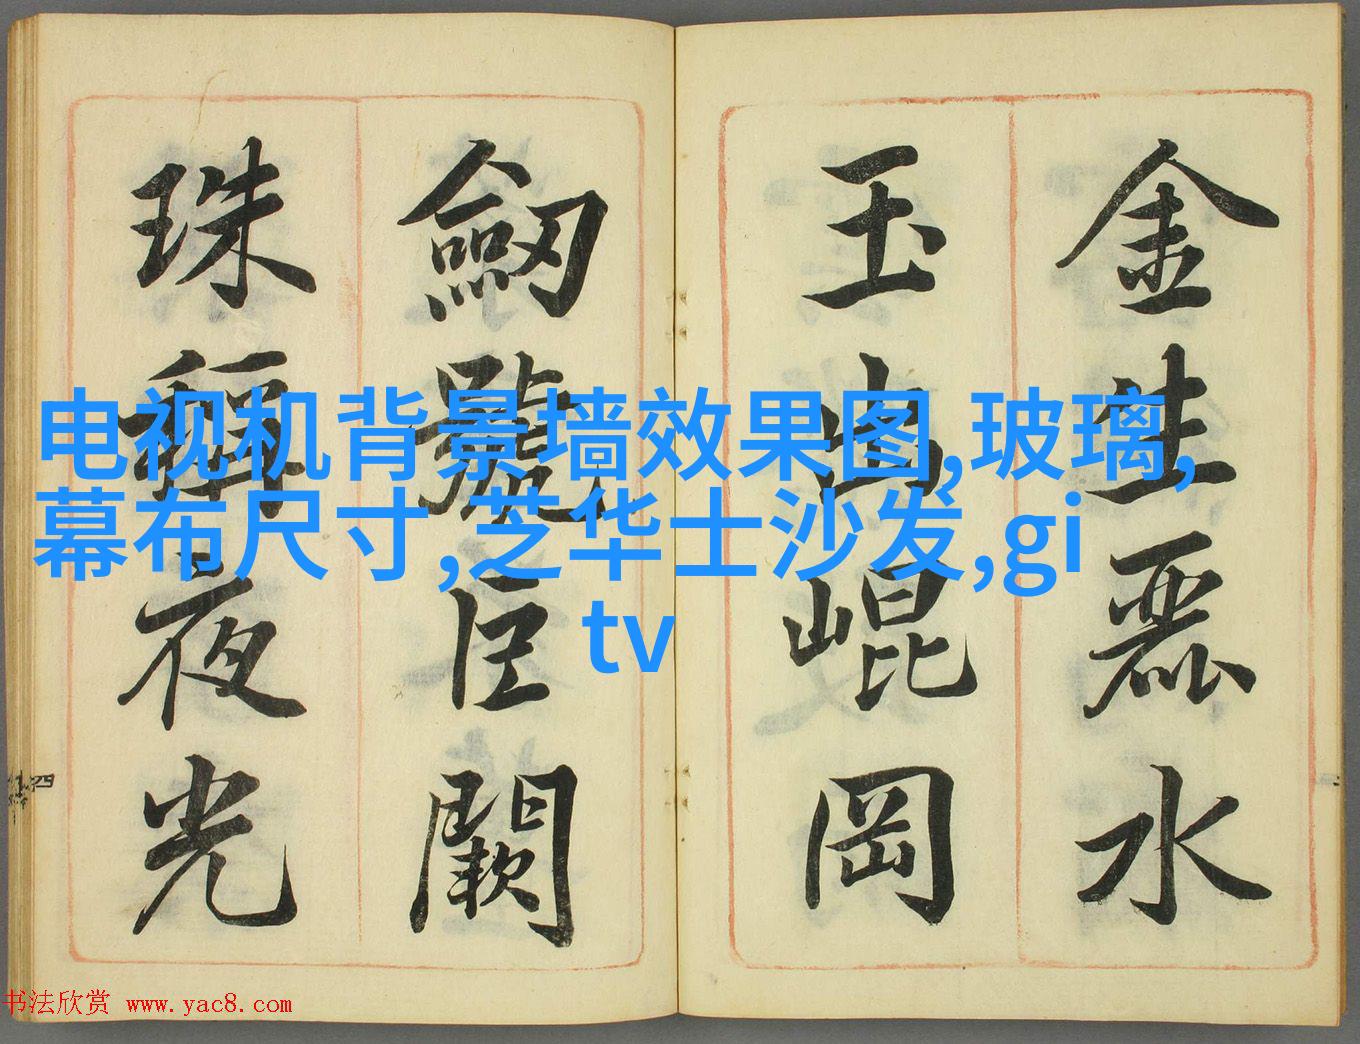 金生麗水
玉出崐岡
劒號巨闕
珠稱夜光
电视机背景墙效果图,玻璃,
幕布尺寸,芝华士沙发,gi
tv
四
书法欣赏 www.yac8.com